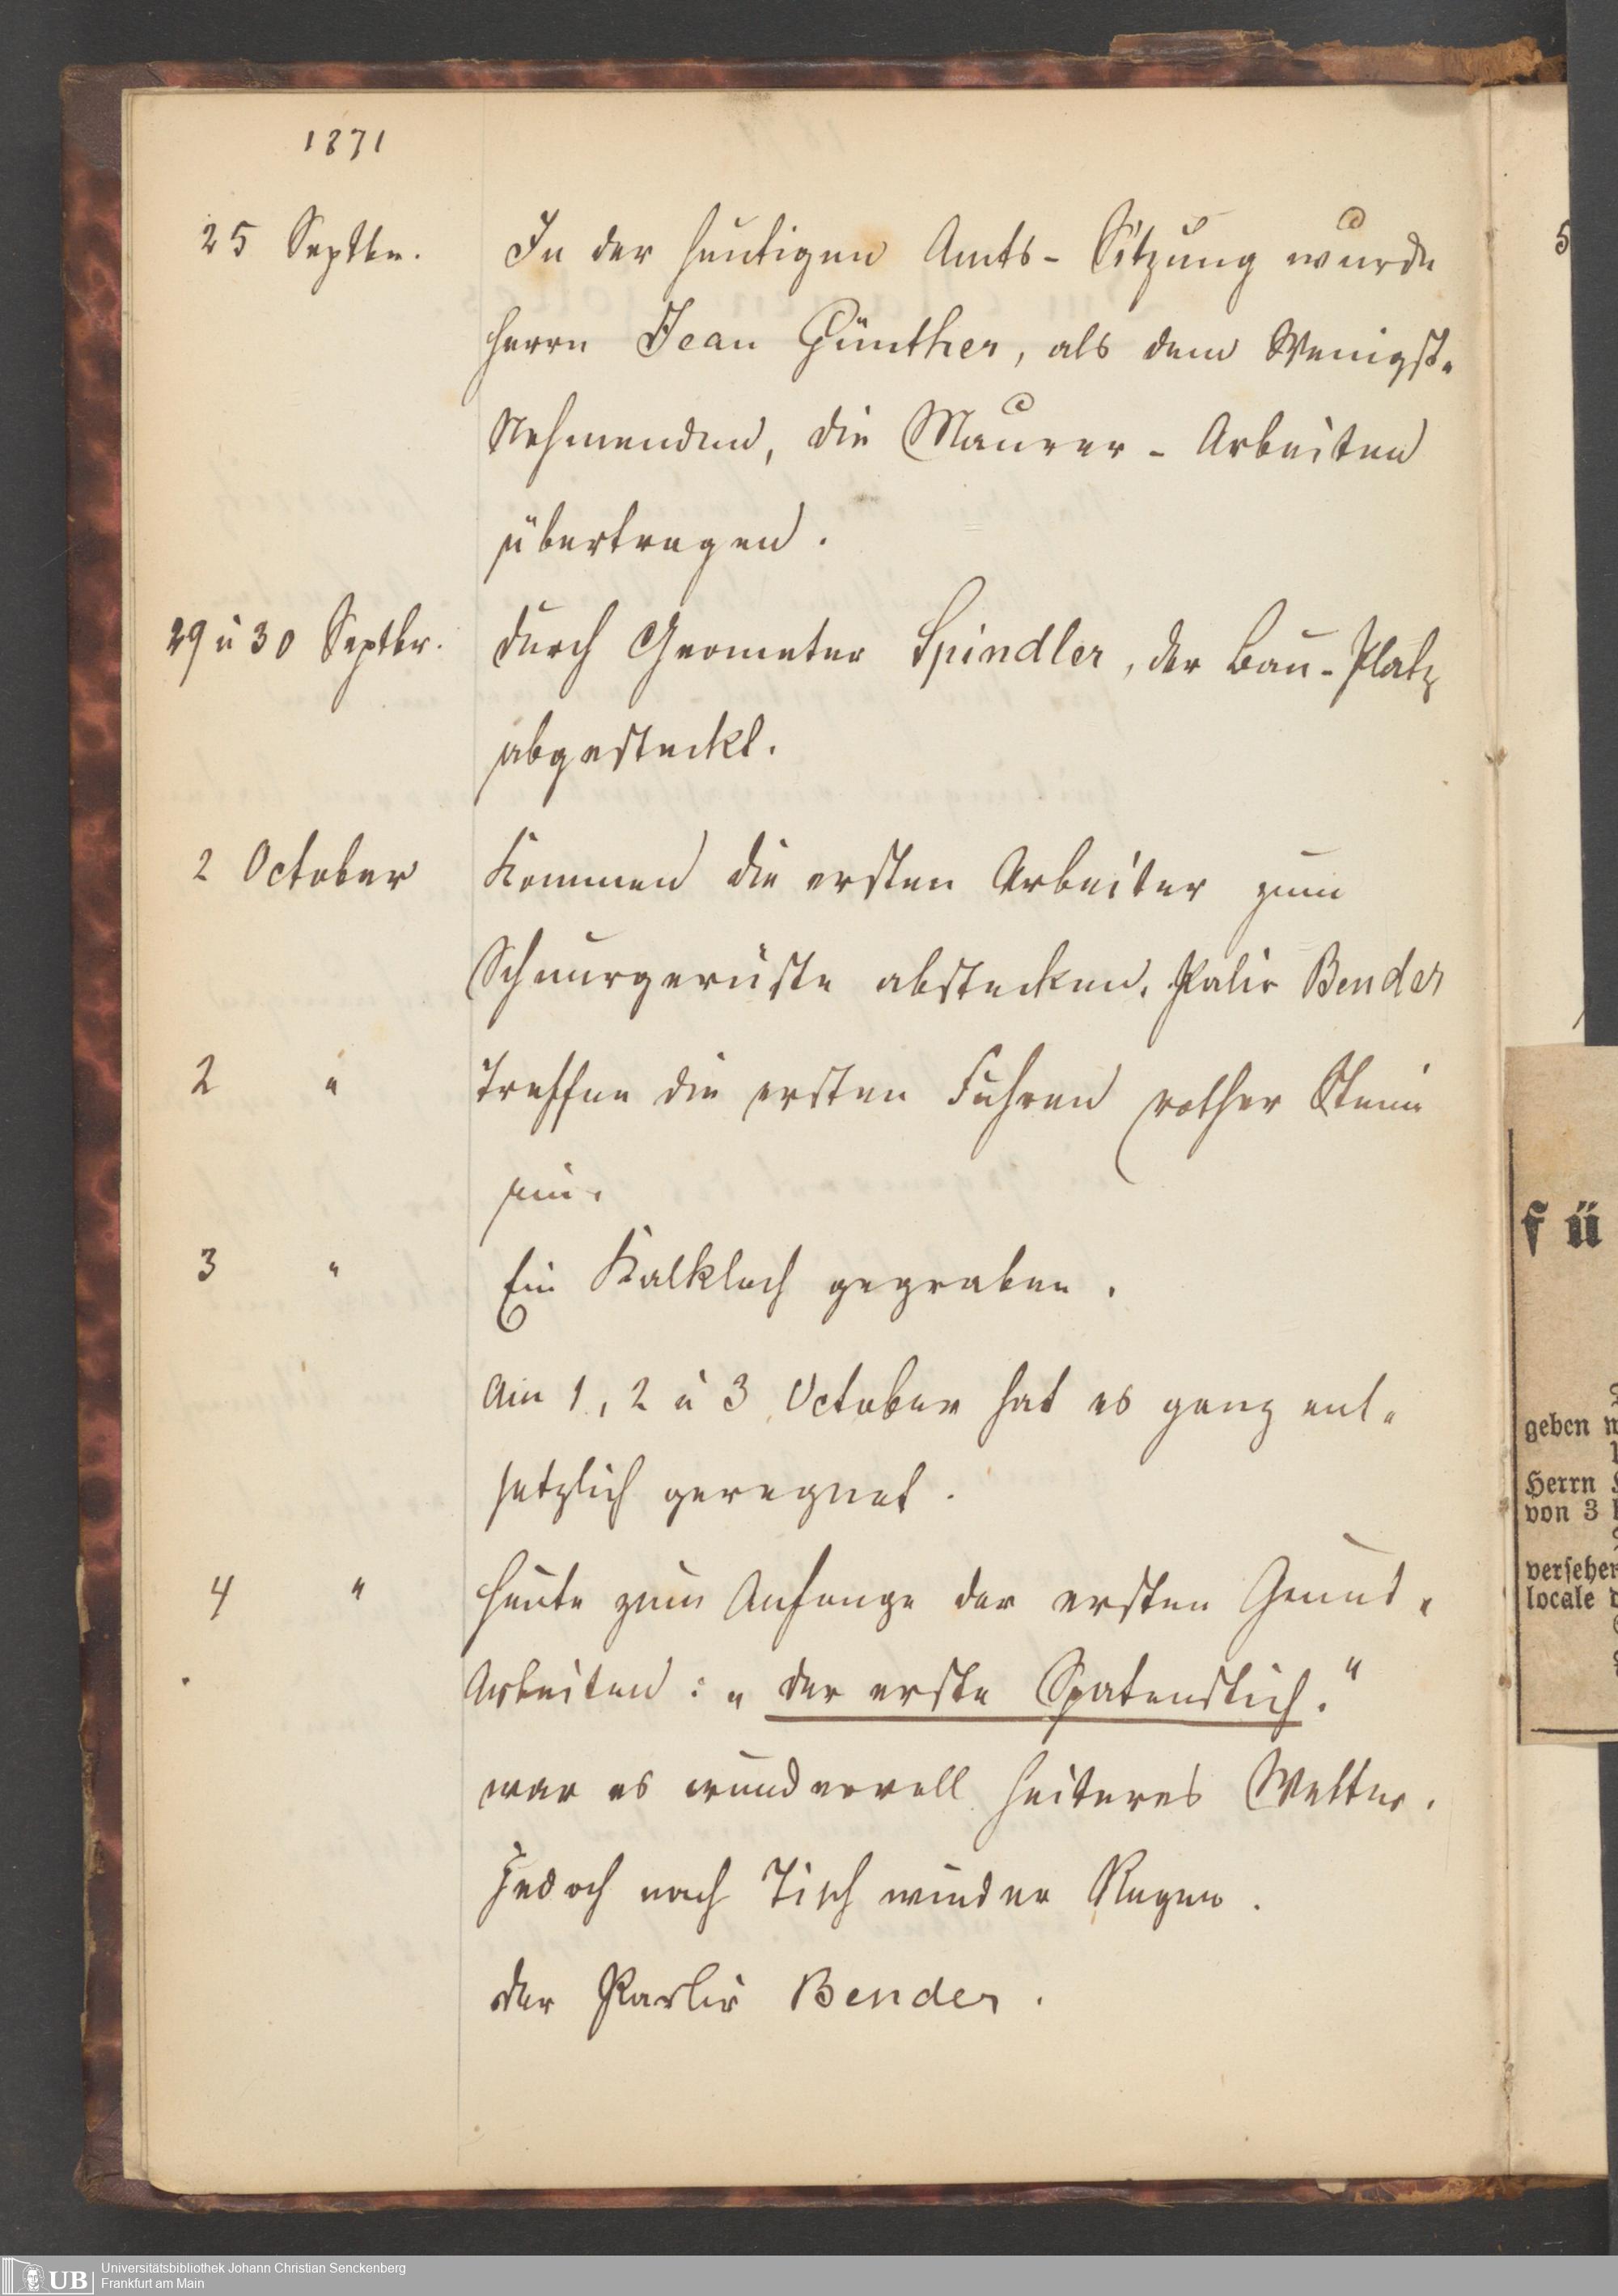 1871
25 Septbr. In der heutigen Amts-Sitzung wurde
Herrn Jean Günther, als dem Wenigst-
Nehmenden, die Maurer-Arbeiten
übertragen.
29 u 30 Septbr. durch Geometer Spindler, der Bau-Platz
abgesteckt.
2 October Kommen die ersten Arbeiter zum
Schnurgerüste abstecken. Palir Bender
2 " Treffen die ersten Fuhren rother Stein
ein.
3 " Ein Kalkloch gegraben.
Am 1, 2 u 3 October hat es ganz ent-
setzlich geregnet.
4 " Heute zum Anfange der ersten Grund-
Arbeiten: „der erste Spatenstich."
war es wundervoll heiteres Wetter.
Jedoch nach Tisch wieder Regen.
der Parlir Bender.
5
fü
geben
Herrn
von 3
versehen
locale
UB Universitätsbibliothek Johann Christian Senckenberg
Frankfurt am Main